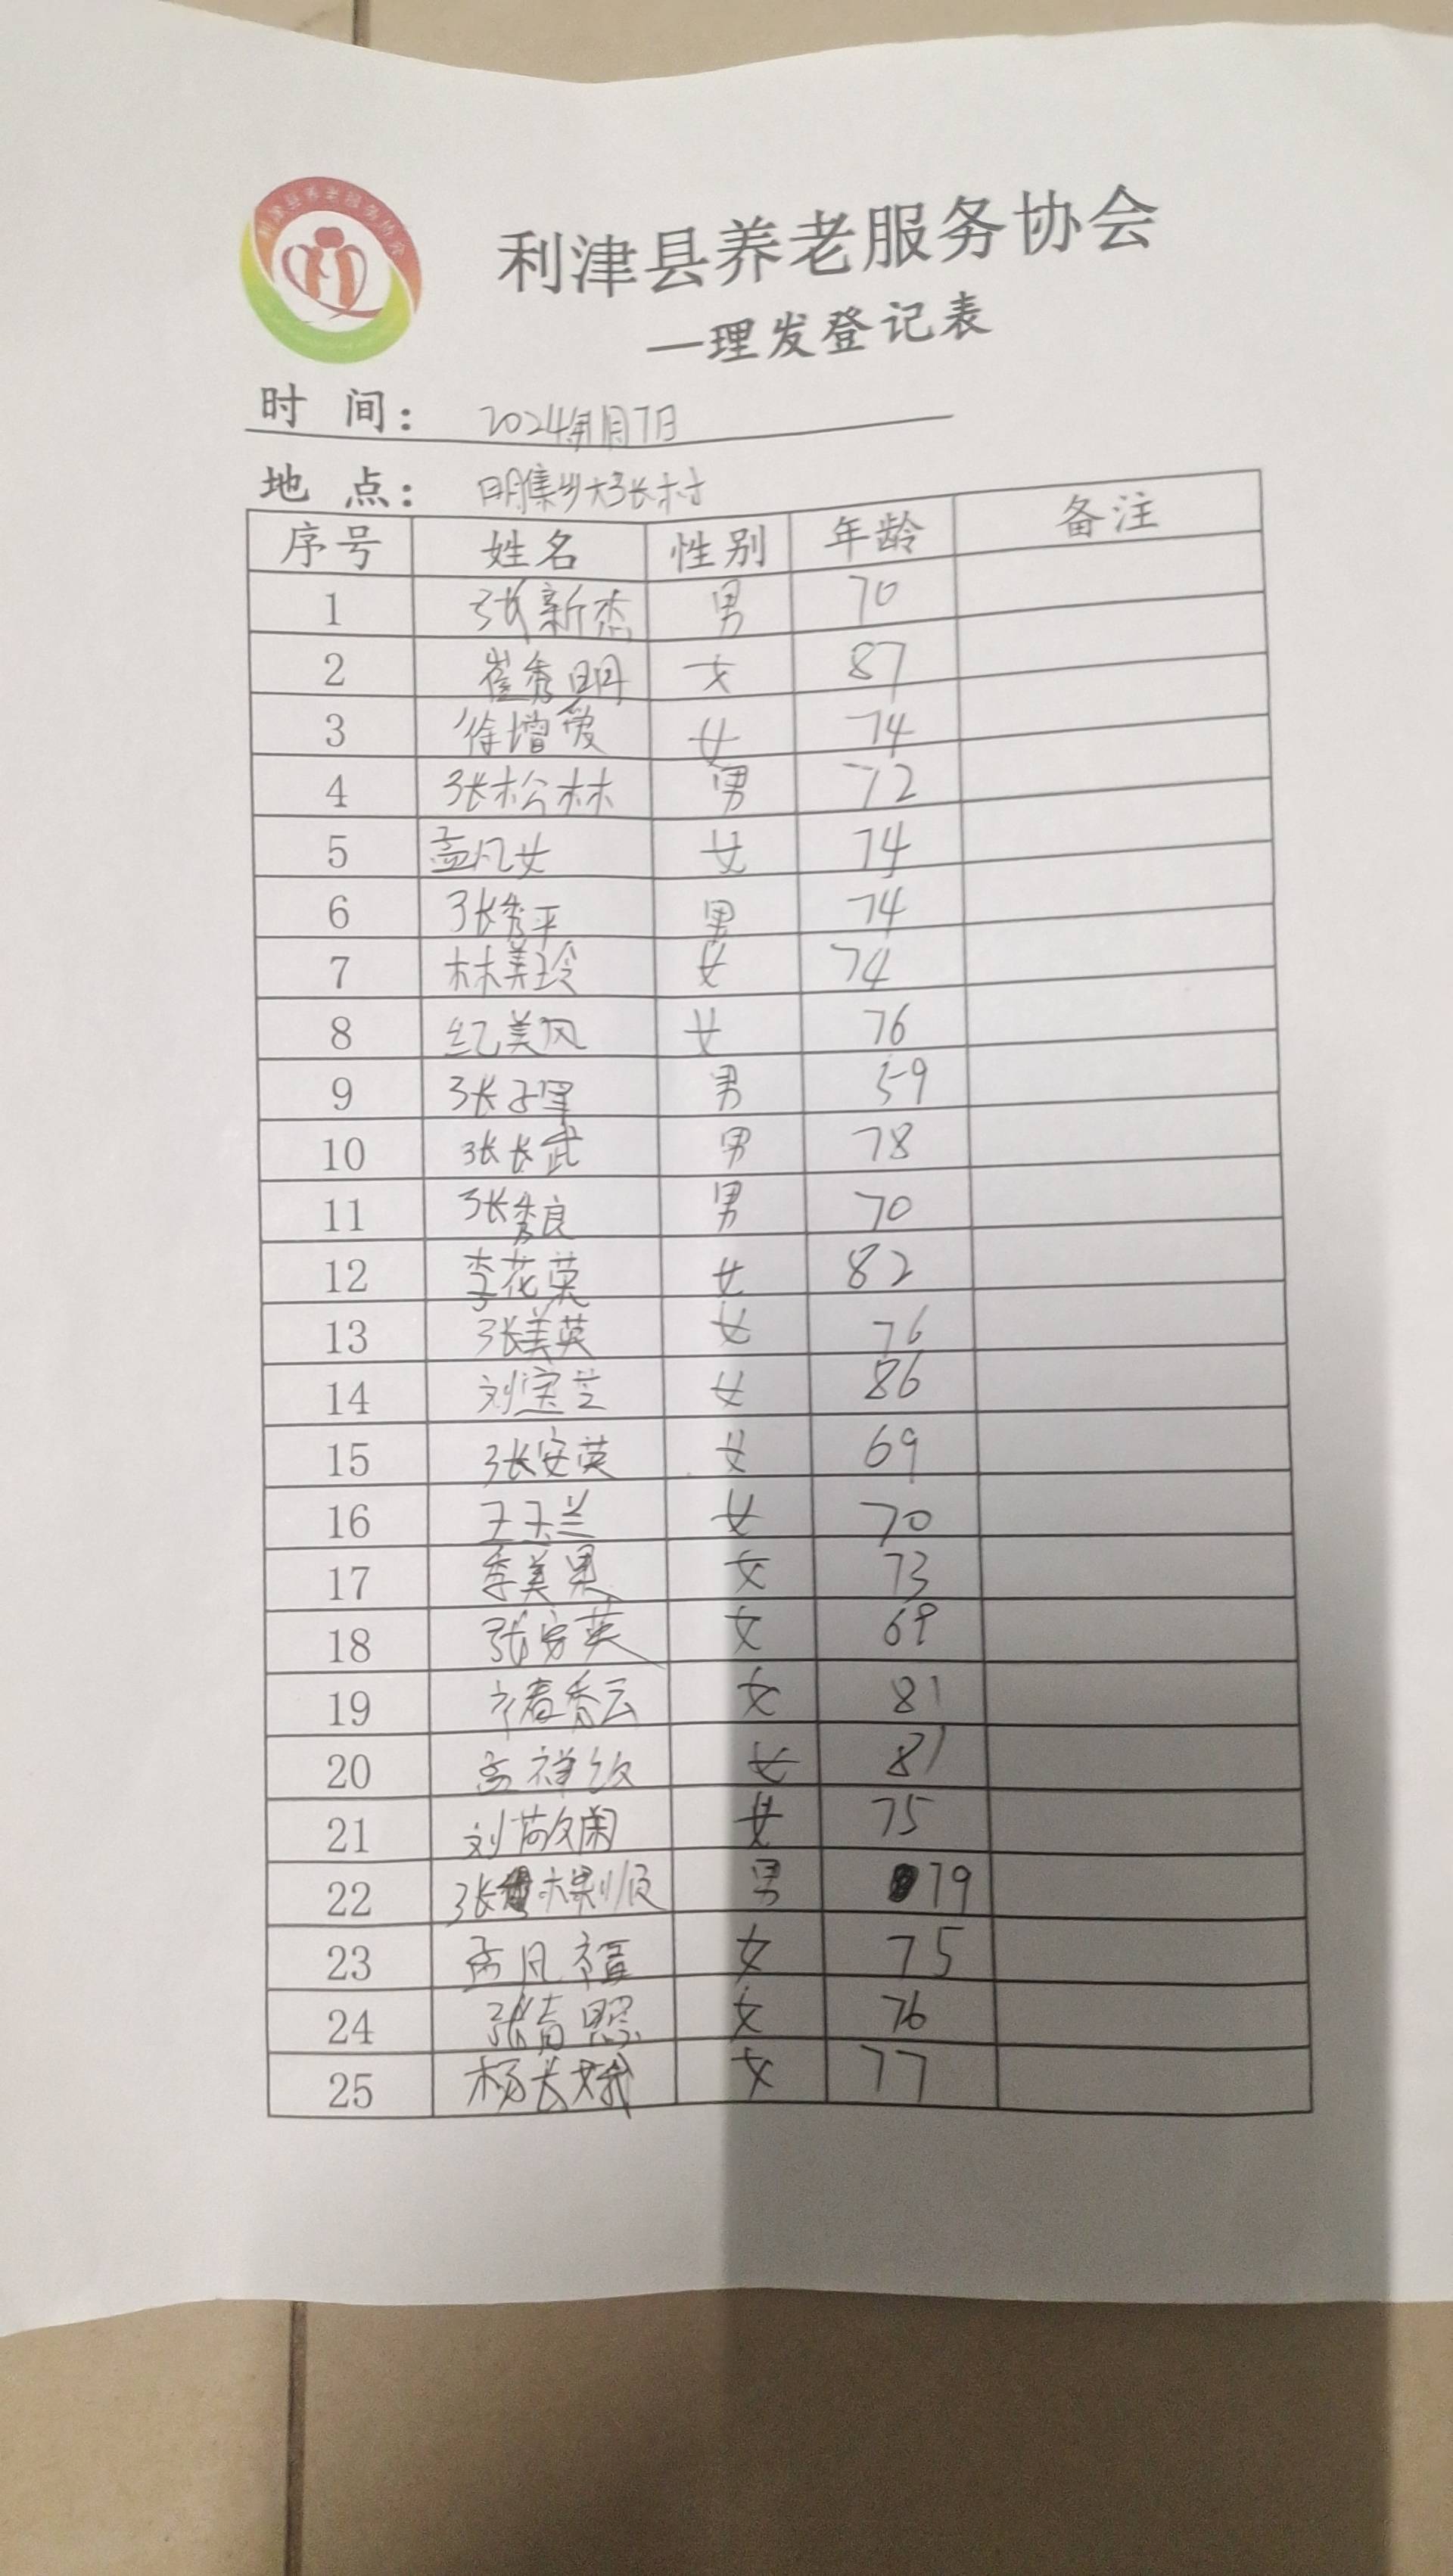 利津县养老服务协会
利津县养老服务协会
—理发登记表
时 间： 2024年11月7日
地 点： 明集乡大张村
序号 姓名 性别 年龄 备注
1 张新杰 男 70
2 崔秀明 女 87
3 徐增爱 女 74
4 张松林 男 72
5 孟凡女 女 74
6 张秀平 男 74
7 林美玲 女 74
8 纪美风 女 76
9 张子军 男 59
10 张长武 男 78
11 张秀良 男 70
12 李花英 女 82
13 张美英 女 76
14 刘宝芝 女 86
15 张安英 女 69
16 王玉兰 女 70
17 季美果 女 73
18 张安英 女 69
19 秀云 女 81
20 孟祥 女 81
21 刘敬兰 女 75
22 张 男 79
23 孟凡福 女 75
24 张 女 76
25 杨长娥 女 77